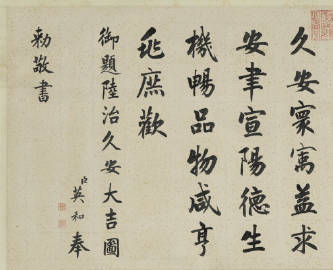 久安寰寓益求
安聿宣陽德生
機暢品物咸亨
兆庶歡
御題陸治久安大吉圖
臣英和奉
勅敬書